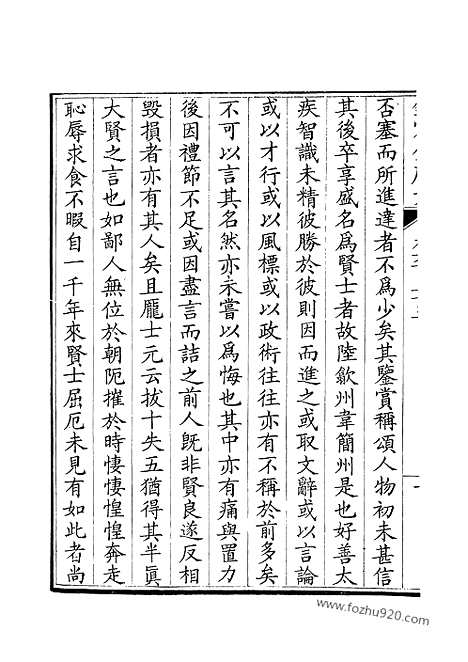 否塞而所進達者不爲少矣其鑒賞稱頌人物初未甚信
其後卒享盛名爲賢士者故陸歙州韋簡州是也好善太
疾智識未精彼勝於彼則因而進之或取文辭或以言論
或以才行或以風標或以政術往往亦有不稱於前多矣
不可以言其名然亦未嘗以爲悔也其中亦有痛與置力
後因禮節不足或因盡言而詰之前人既非賢良遂反相
毀損者亦有其人矣且龐士元云拔十失五猶得其半眞
大賢之言也如鄙人無位於朝阨摧於時悽悽惶惶奔走
恥辱求食不暇自一千年來賢士屈厄未見有如此者尚
www.fozhu920.com